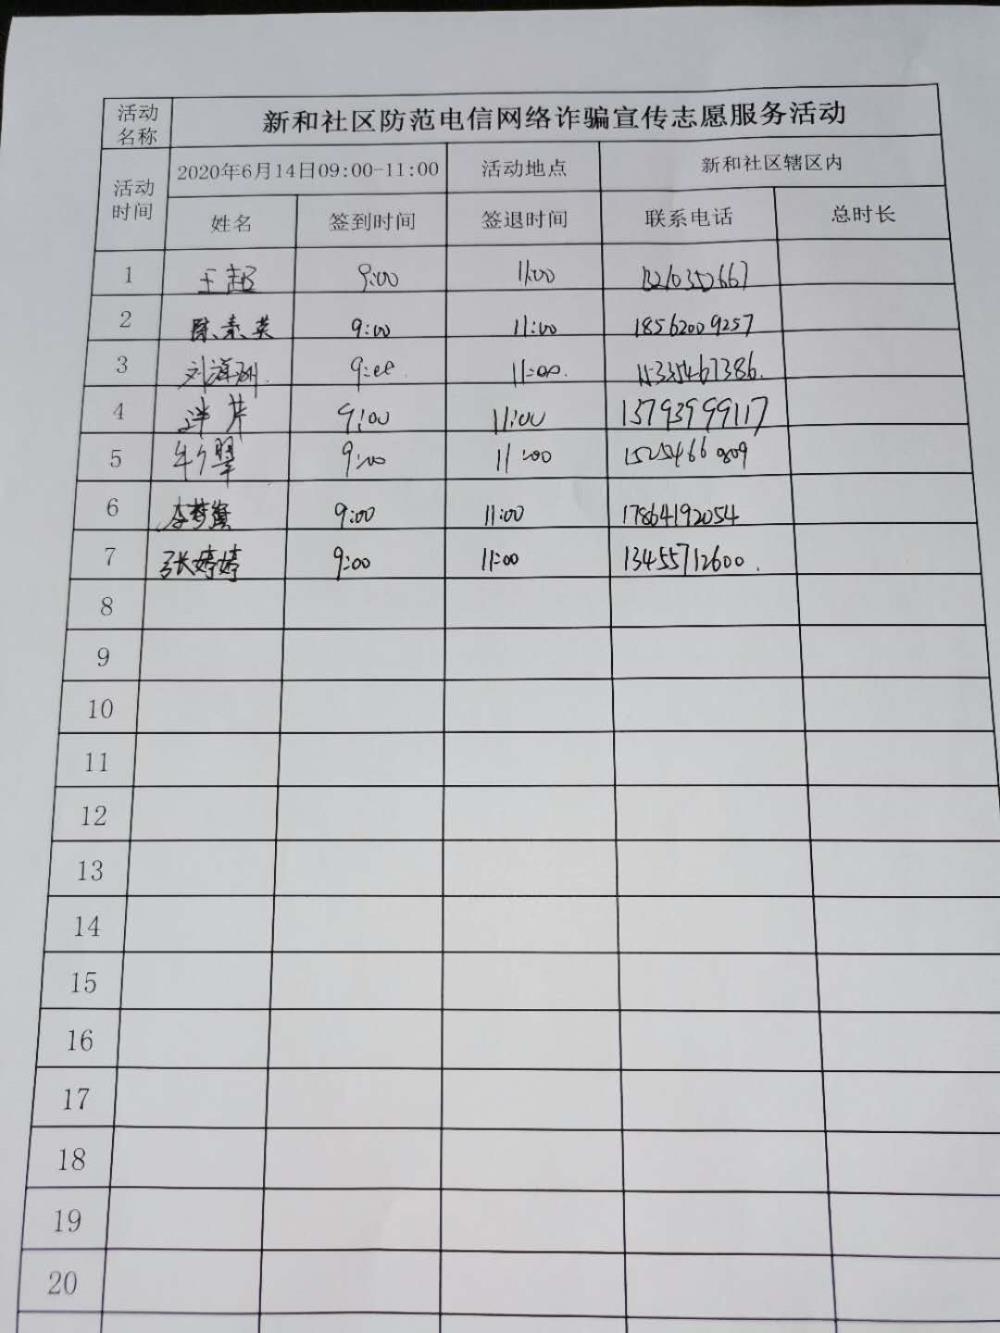 活动名称 新和社区防范电信网络诈骗宣传志愿服务活动
活动时间 2020年6月14日09:00-11:00 活动地点 新和社区辖区内
姓名 签到时间 签退时间 联系电话 总时长
1 王超 9:00 11:00
2 陈素英 9:00 11:00 18562009257
3 9:00 11:00
4 9:00 11:00 13793999117
5 9:00 11:00
6 李梦 9:00 11:00 17864192054
7 张婷婷 9:00 11:00 13455712600.
8
9
10
11
12
13
14
15
16
17
18
19
20